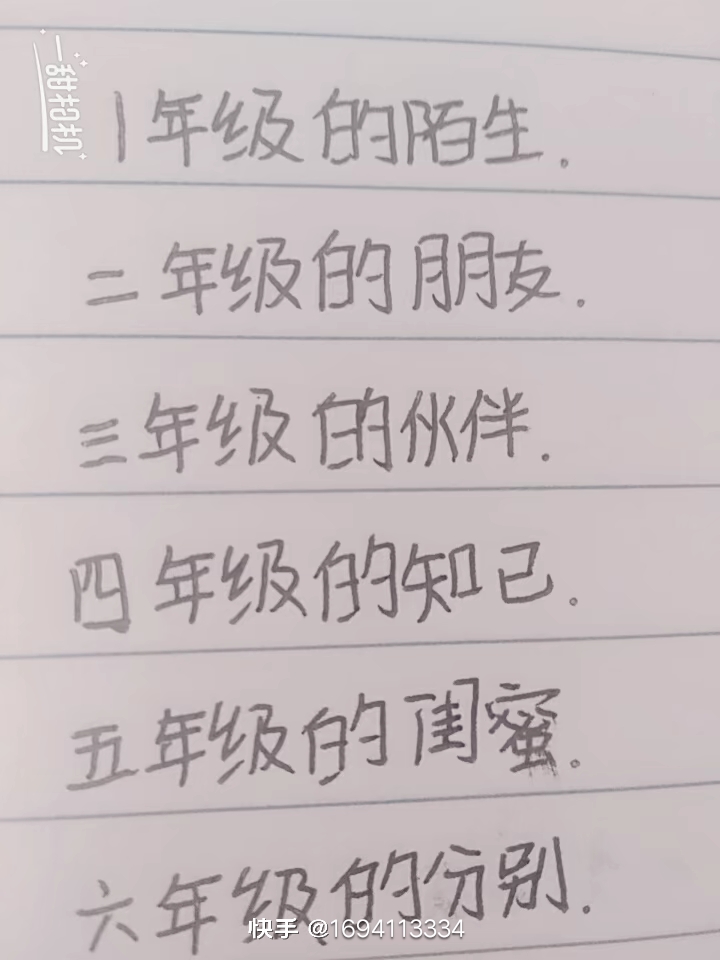 一甜相机
1年级的陌生.
二年级的朋友.
三年级的伙伴.
四年级的知己.
五年级的闺蜜.
六年级的分别.
快手 @1694113334